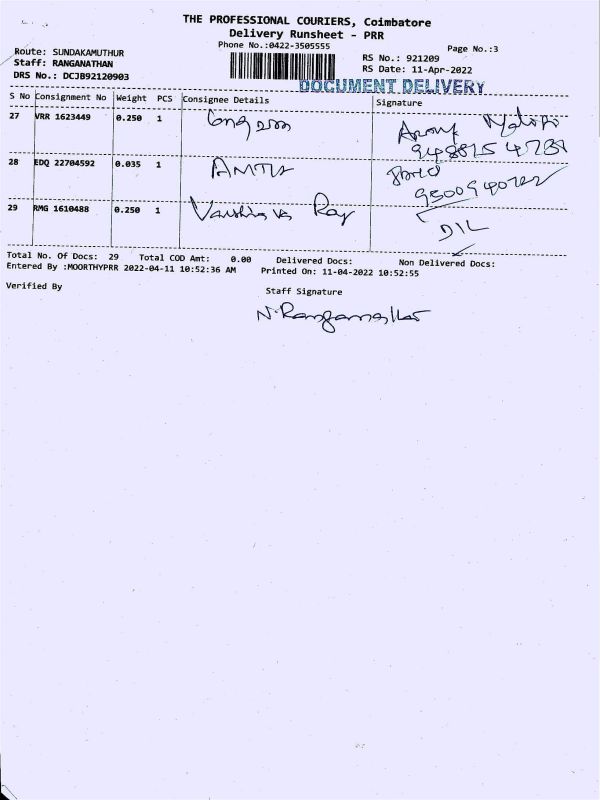 THE PROFESSIONAL COURIERS, Coimbatore
Delivery Runsheet - PRR
Phone No.:0422-3505555
Page No.:3
Route: SUNDAKAMUTHUR
RS No.: 921209
Staff: RANGANATHAN
RS Date: 11-Apr-2022
DRS No.: DCJB92120903
DOCUMENT DELIVERY
S No Consignment No Weight PCS Consignee Details Signature
27 VRR 1623449 0.250 1
28 EDQ 22704592 0.035 1
29 RMG 1610488 0.250 1 Ray
Total No. Of Docs: 29 Total COD Amt: 0.00 Delivered Docs: Non Delivered Docs:
Entered By :MOORTHYPRR 2022-04-11 10:52:36 AM Printed On: 11-04-2022 10:52:55
Verified By
Staff Signature